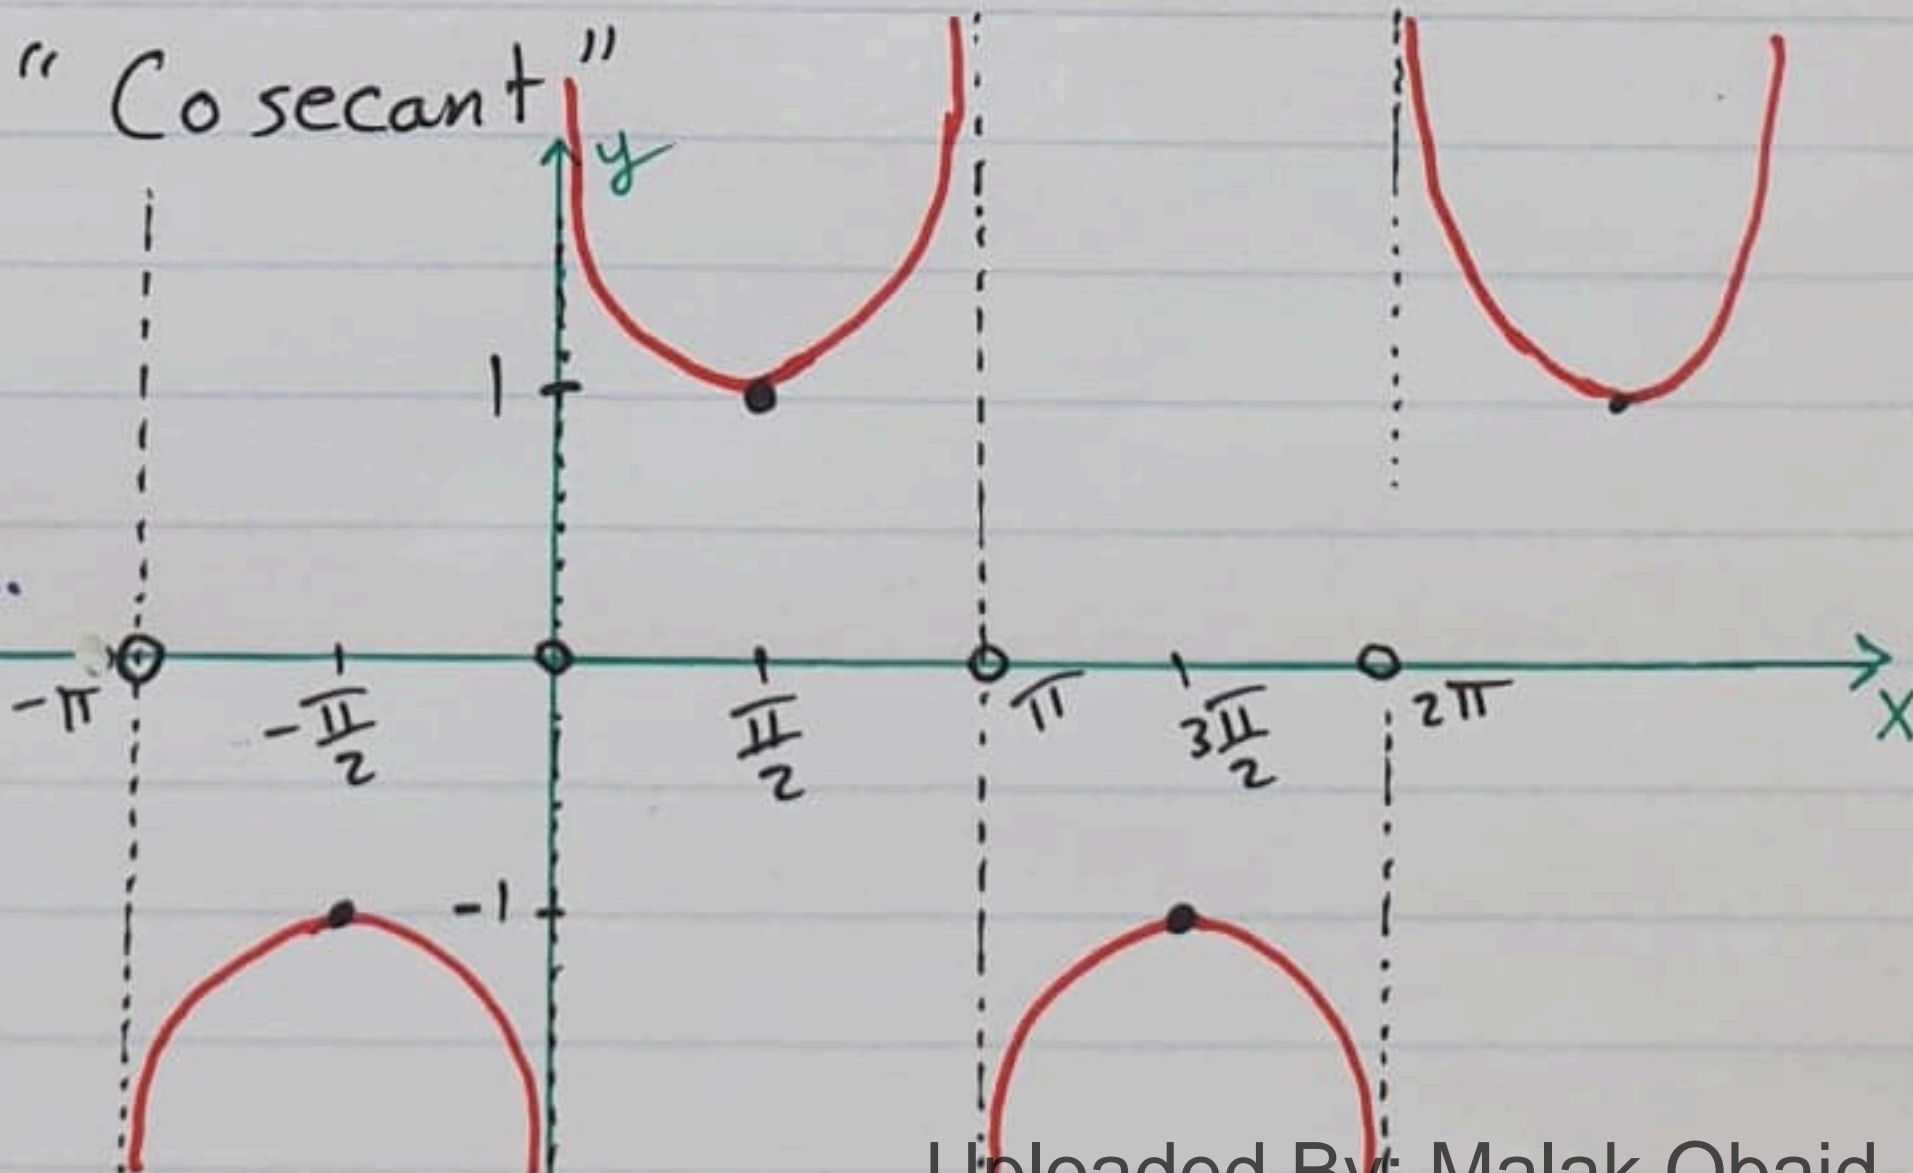 "Cosecant"
y
1
-π
-π/2
π/2
π
3π/2
2π
x
-1
Uploaded By: Malak Obaid